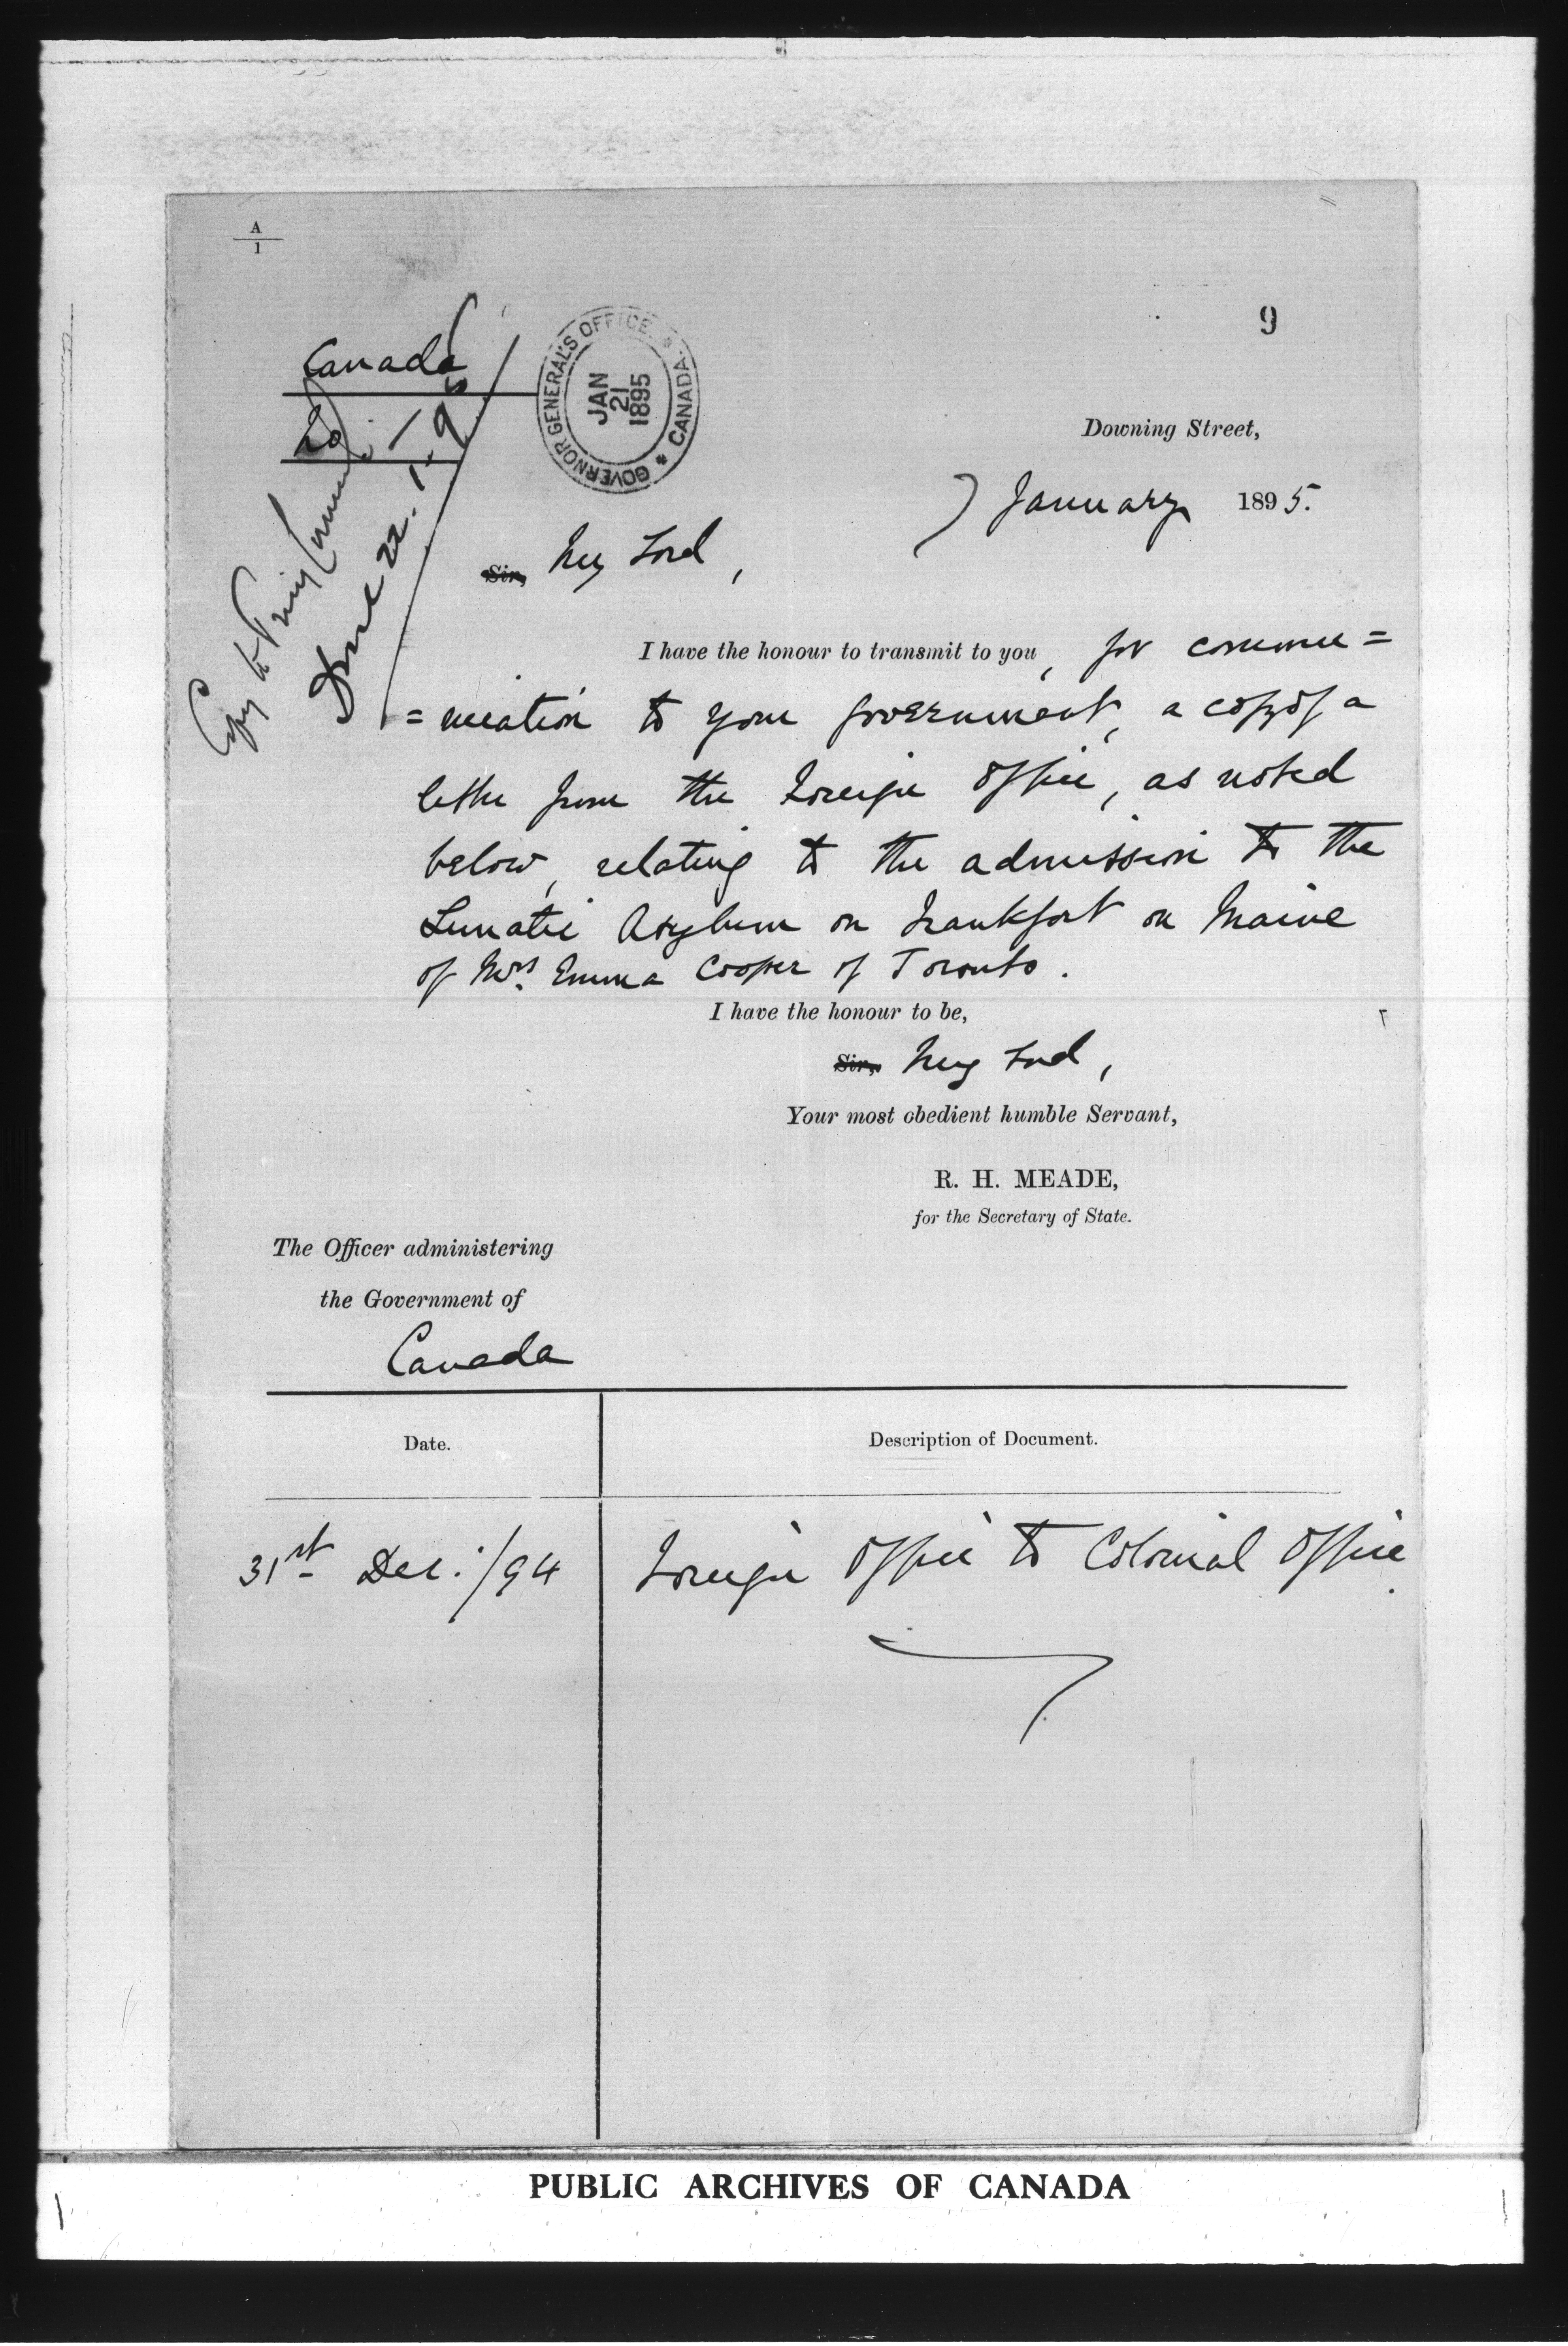 A
1
9
Canada
GOVERNOR GENERAL'S OFFICE * CANADA *
JAN
21
1895
Copy to Privy Council
Done 22.1.95
Downing Street,
7 January 1895.
Sir, My Lord,
I have the honour to transmit to you, for commu=
=nication to your government, a copy of a
letter from the Foreign Office, as noted
below, relating to the admission to the
Lunatic Asylum on Frankfort on Maine
of Mrs. Emma Cooper of Toronto.
I have the honour to be,
Sir, My Lord,
Your most obedient humble Servant,
R. H. MEADE,
for the Secretary of State.
The Officer administering
the Government of
Canada
Date.
Description of Document.
31st Dec./94
Foreign Office to Colonial Office.
PUBLIC ARCHIVES OF CANADA